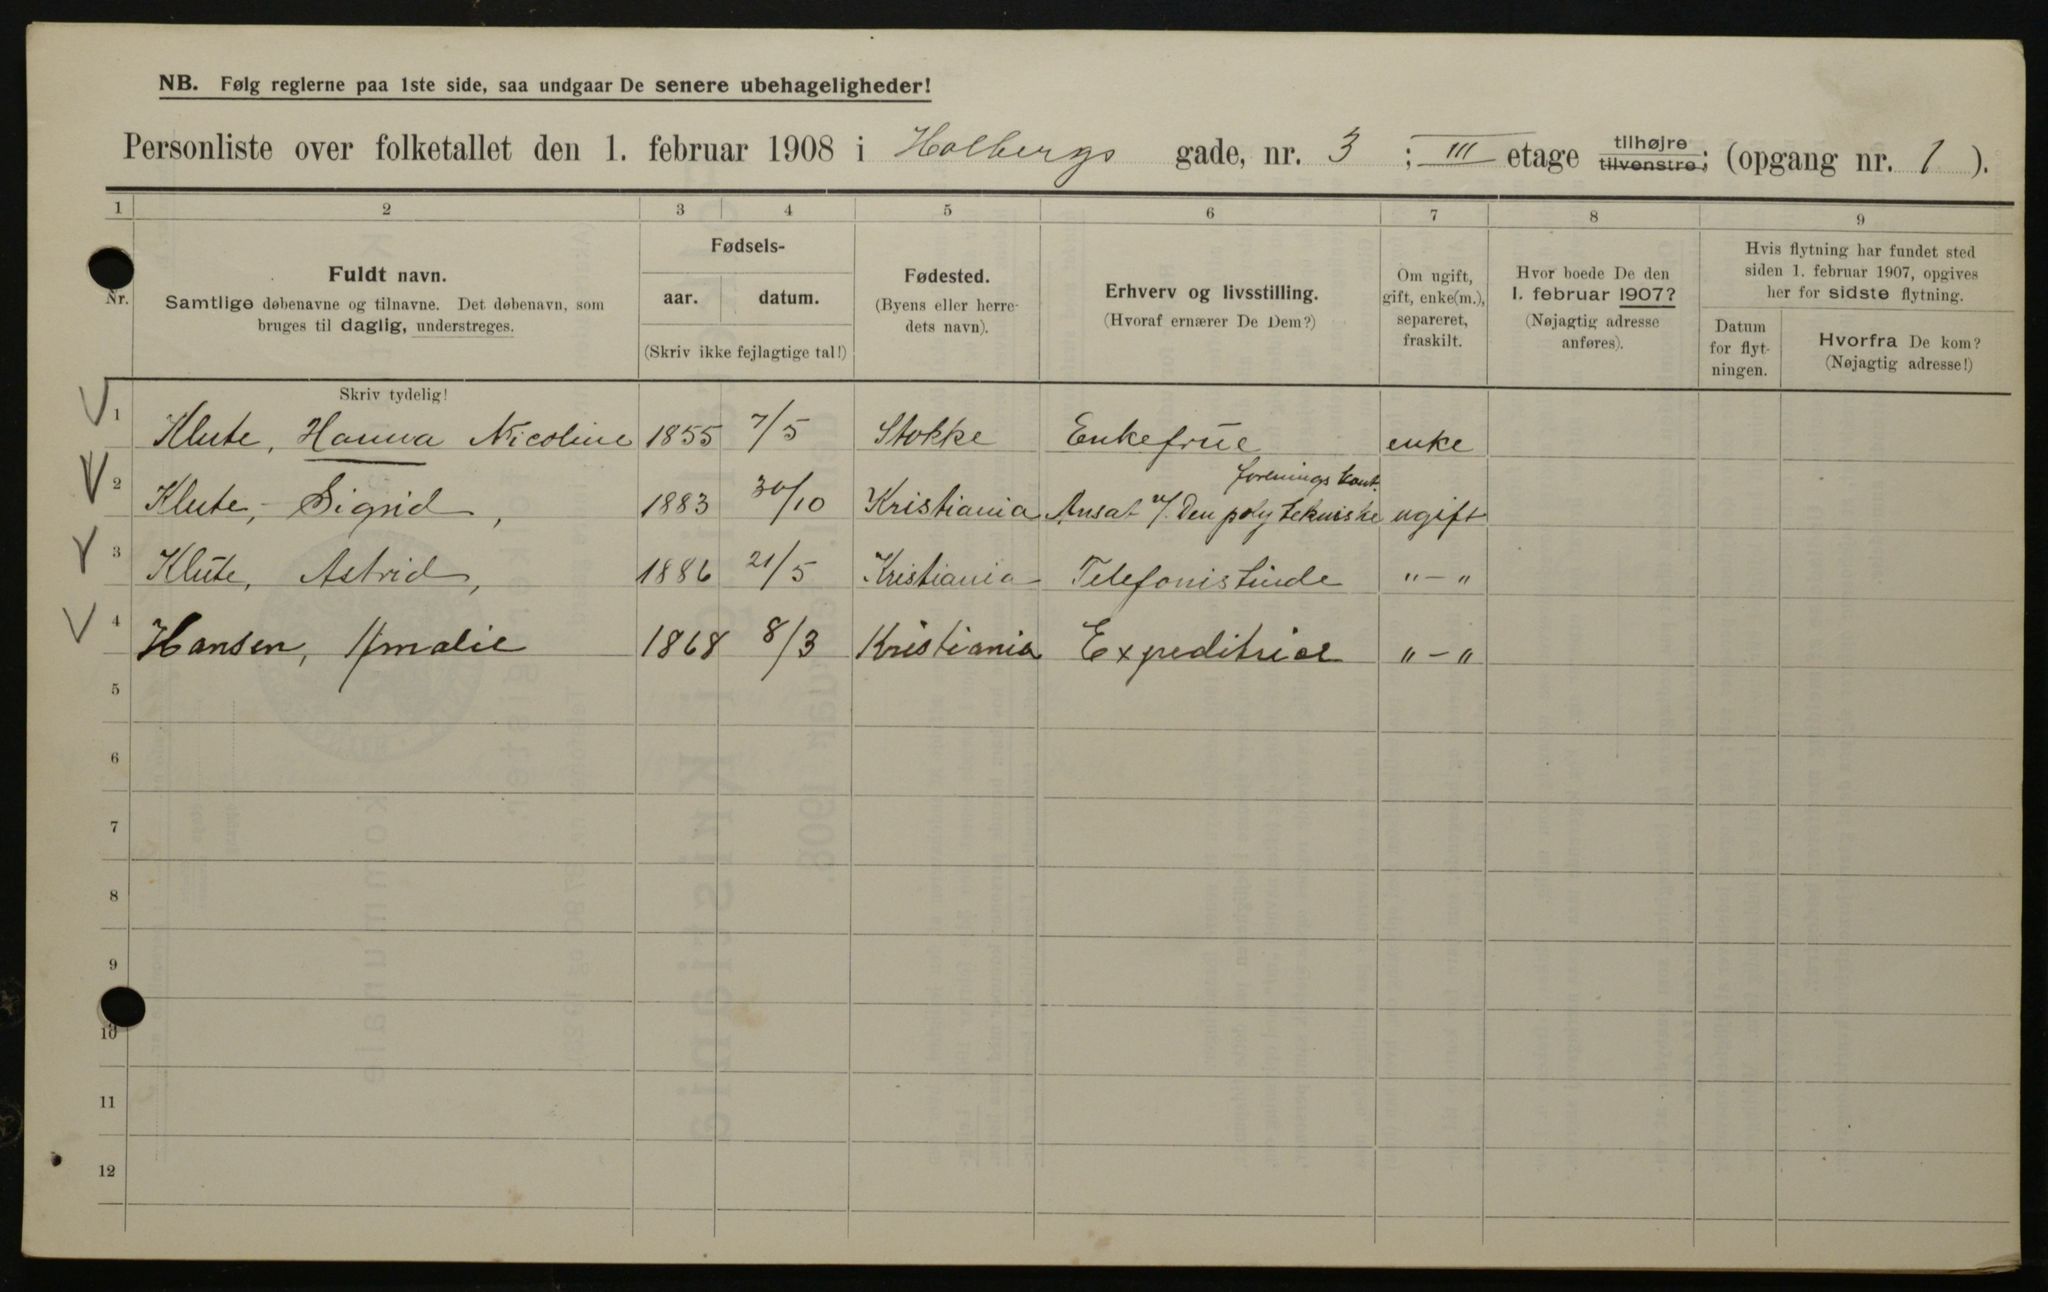 NB. Følg reglerne paa 1ste side, saa undgaar De senere ubehageligheder!
Personliste over folketallet den 1. februar 1908 i Holbergs gade, nr. 3 ; III etage tilhøjre tilvenstre; (opgang nr. 1 ).
1 2 3 4 5 6 7 8 9
Nr.
Fuldt navn.
Samtlige døbenavne og tilnavne. Det døbenavn, som
bruges til daglig, understreges.
Fødsels-
aar. datum.
(Skriv ikke fejlagtige tal!)
Fødested.
(Byens eller herre-
dets navn).
Erhverv og livsstilling.
(Hvoraf ernærer De Dem?)
Om ugift,
gift, enke(m.),
separeret,
fraskilt.
Hvor boede De den
1. februar 1907?
(Nøjagtig adresse
anføres).
Hvis flytning har fundet sted
siden 1. februar 1907, opgives
her for sidste flytning.
Datum
for flyt-
ningen.
Hvorfra De kom?
(Nøjagtig adresse!)
Skriv tydelig!
1 Klute, Hanna Nicoline 1855 7/5 Stokke Enkefrue enke
forenings kont.
2 Klute, Sigrid, 1883 30/10 Kristiania Ansat v/ Den polytekniske ugift
3 Klute, Astrid, 1886 21/5 Kristiania Telefonistinde "-"
4 Hansen, Amalie 1868 8/3 Kristiania Expeditrice "-"
5
6
7
8
9
10
11
12